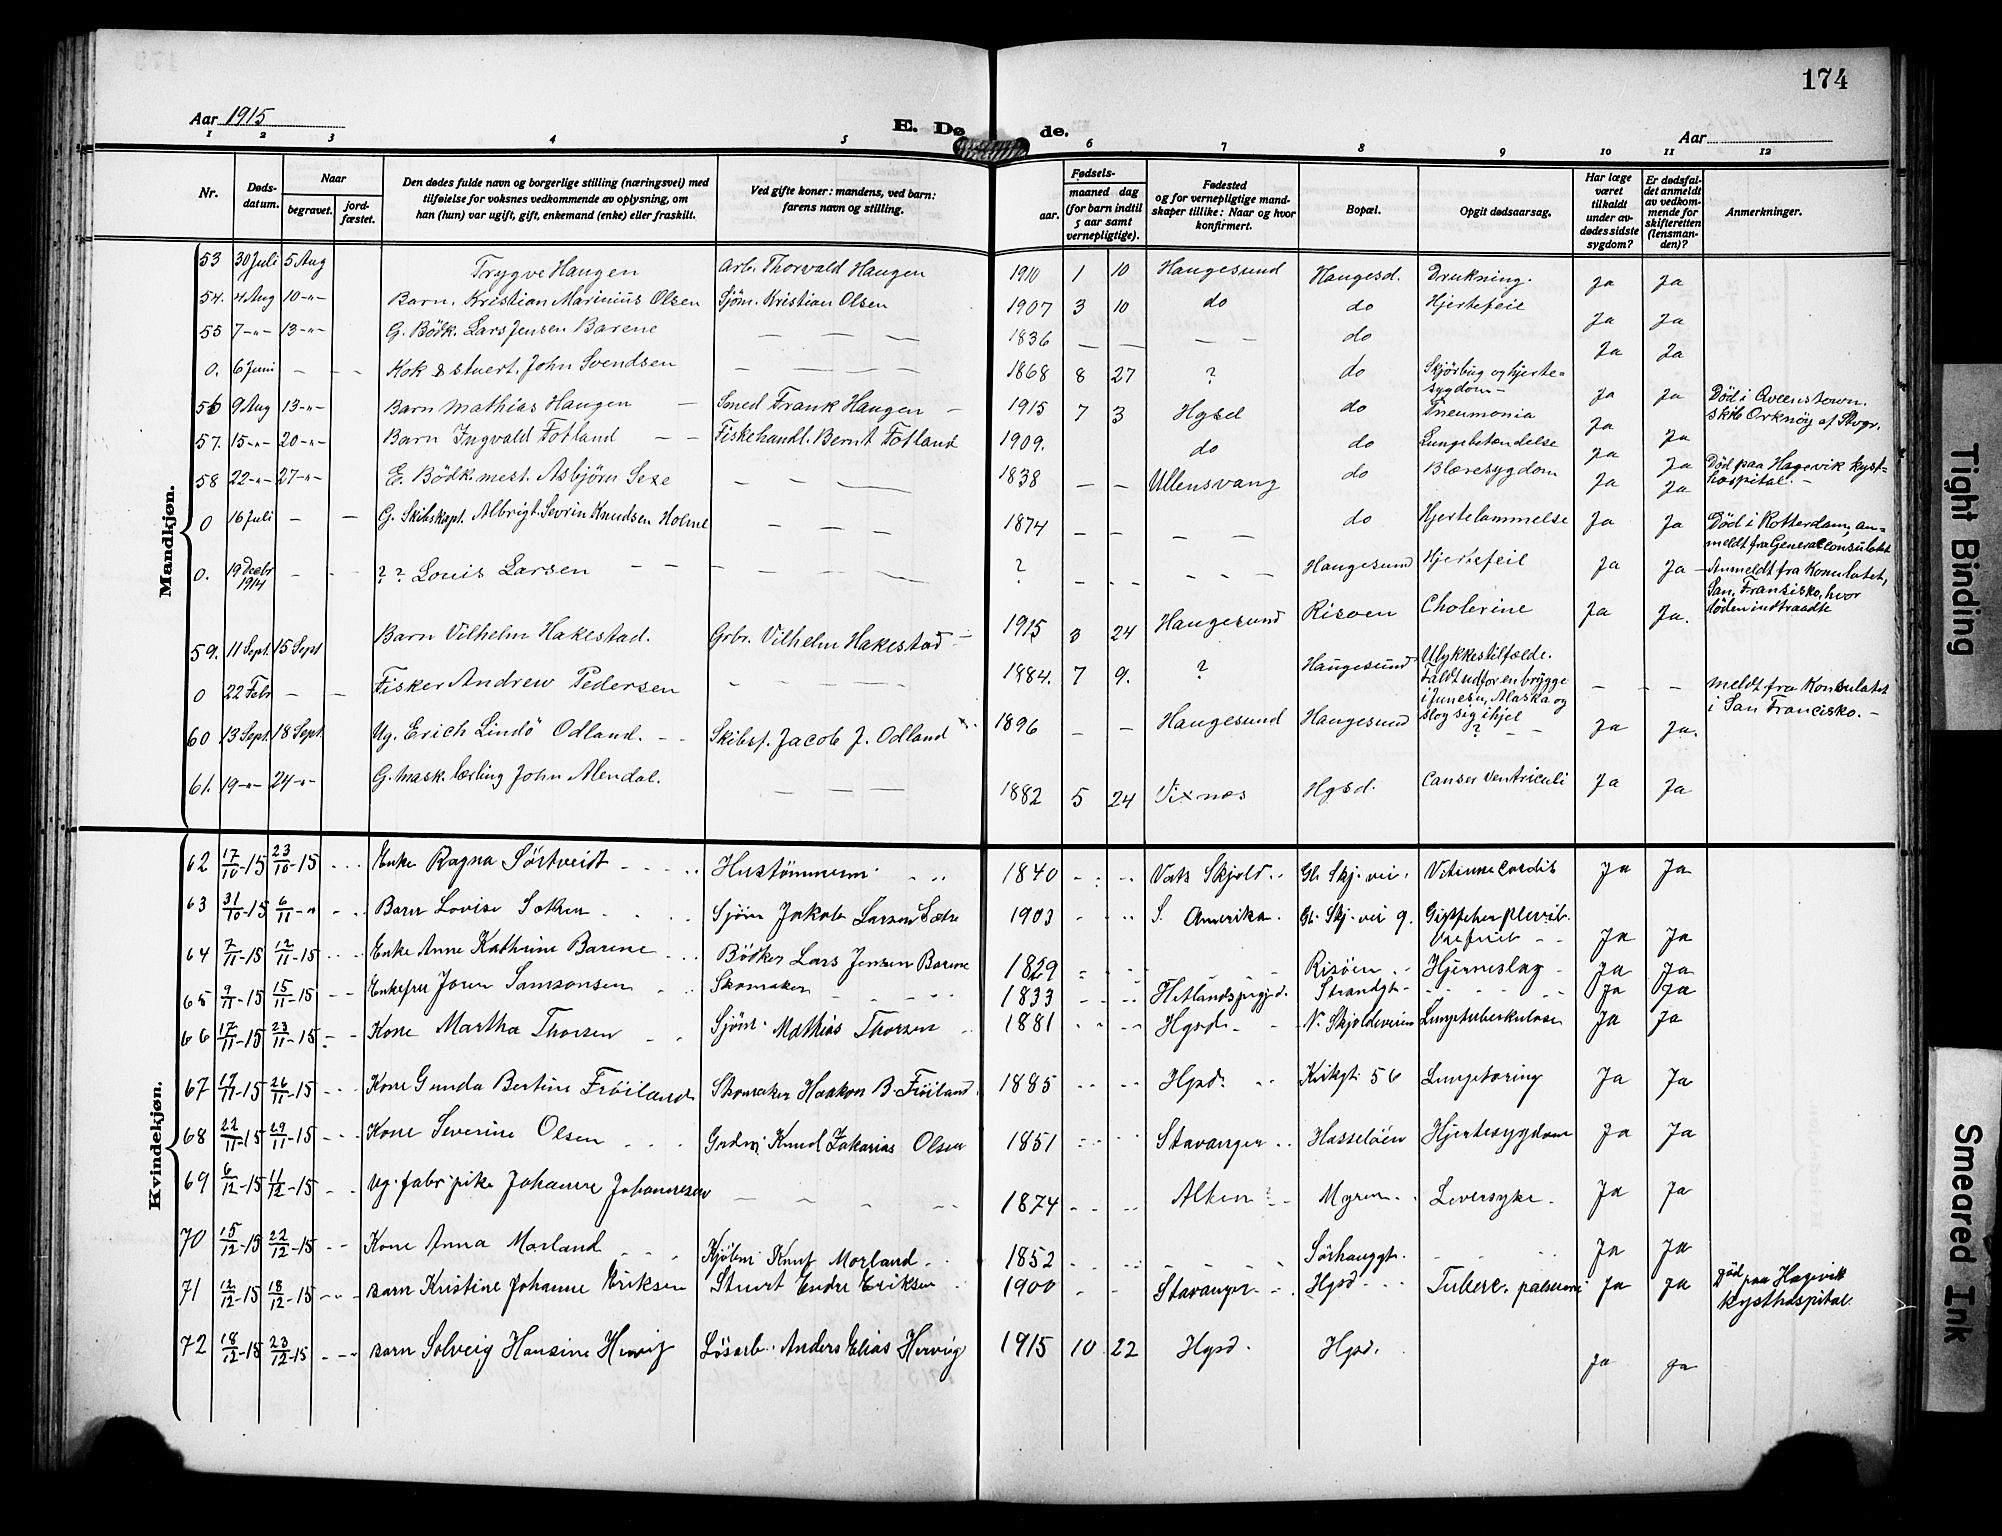 174
Aar 1915
E. Dø
de.
Aar
1 2 3 4 5 6 7 8 9 10 11 12
Nr.
Døds-
datum.
Naar
begravet.
jord-
fæstet.
Den dødes fulde navn og borgerlige stilling (næringsvei) med
tilføielse for voksnes vedkommende av oplysning, om
han (hun) var ugift, gift, enkemand (enke) eller fraskilt.
Ved gifte koner: mandens, ved barn:
farens navn og stilling.
Fødsels-
aar.
maaned dag
(for barn indtil
5 aar samt
vernepligtige).
Fødested
og for vernepligtige mand-
skaper tillike: Naar og hvor
konfirmert.
Bopæl.
Opgit dødsaarsag.
Har læge
været
tilkaldt
under av-
dødes sidste
sygdom?
Er dødsfal-
det anmeldt
av vedkom-
mende for
skifteretten
(lensman-
den)?
Anmerkninger.
Mandkjøn.
53 30 Juli 5 Aug Trygve Haugen Arb. Thorvald Haugen 1910 1 10 Haugesund Haugesd. Drukning. Ja Ja
54. 4 Aug 10-"- Barn. Kristian Marinius Olsen Sjöm. Kristian Olsen 1907 3 10 do do Hjertefeil Ja Ja
55 7-"- 13-"- G. Bödk. Lars Jensen Barene — — — 1836 — — — — do Ja Ja
0. 6 Juni — — — Kok & stuert. John Svendsen — — — — 1868 8 27 ? do Skjørbug og hjerte=
sygdom — Ja Ja Död i Qveenstown.
skib Orknöy af Stvgr.
56 9 Aug 13-"- Barn Mathias Haugen — Smed Frank Haugen — 1915 7 3 Hgsd do Pneumonia Ja
57. 15-"- 20-"- Barn Ingvald Fotland — — Fiskehandl. Bernt Fotland 1909. do do Lungebetændelse Ja Ja
58 22-"- 27-"- E. Bödk. mest. Asbjörn Sexe — — — 1838 — — Ullensvang do Blæresygdom Ja Ja Död paa Hagevik kyst=
hospital. —
0 16 Juli — — G. Skibskapt. Albrigt Sevrin Knudsen Holme — — 1874 — — — — do Hjertelammelse Ja Ja Död i Rotterdam, an=
meldt fra Generalconsulatet
0. 19 Decbr
1914 — — — ? ? Louis Larsen — — — — — ? — — — — — Haugesund Hjertefeil Ja Ja — Anmeldt fra Konsulatet,
San. Franzisko, hvor
döden indtraadte
59. 11 Sept. 15 Sept Barn Vilhelm Hakestad. Grbr. Vilhelm Hakestad — 1915 3 24 Haugesund Risoen Cholerine Ja Ja.
0 22 Febr — — Fisker Andrew Pedersen — — — — 1884. 7 9. ? Haugesund Ulykkestilfælde.
Faldt udfor en brygge
i Juneau, Alaska og
slog sig ihjel — — — meldt fra Konsulatet
i San Francisko. —
60 13 Sept. 18 Sept. Ug. Erich Lindö Odland. — — Skibsf. Jacob J. Odland 1896 — — Haugesund Haugesund ? — — Ja Ja.
61. 19-"- 24-"- G. Mask. lærling John Alendal. — — — 1882 5 24 Vixnes Hgsd. Canser Ventriculi Ja Ja
Kvindekjøn.
62 17/10-15 23/10-15 Enke Ragna Sørtveidt Hustömmerm. 1840 Vats Skjold Gl. Skj. vei. Vitium Cordis Ja Ja
63 31/10-15 6/11-" Barn Lovise Sæther Sjöm Jakob Larsen Sætre 1903 S. Amerika. Gl. Skj. vei 9. Gigtfeber plevit. Ja Ja
64 7/11-15 12/11-15 Enke Anne Kathrine Barene Bödker Lars Jensen Barene 1829 Risöen Hjerneslag Ja Ja
65 9/11-15 15/11-15 Enkefru Joren Samsonsen Skomaker 1833 Hetlands prgjd. Strandgt. Ja Ja
66 17/11-15 23/11-15 Kone Martha Thorsen Sjöm. Mathias Thorsen 1881 Hgsd. N. Skjoldeveien Lungetuberkulose Ja Ja
67 19/11-15 26/11-15 Kone Gunda Bertine Fröiland Skomaker Haakon B. Fröiland. 1885 Hgsd. Kirkgt. 56 Lungetæring Ja Ja
68 22/11-15 29/11-15 Kone Severine Olsen Grdm. Knud Zakarias Olsen 1851 Stavanger Hasselöen Hjertesygdom Ja Ja
69 6/12-15 11/12-15 Ug. fabr. pike Johanne Johannesen 1874 Alten ? Myren Leversyke Ja Ja
70 15/12-15 22/12-15 Kone Anna Morland Kjøbm. Knut Morland 1852 Sörhauggt. Ja Ja
71 12/12-15 18/12-15 Barn Kristine Johanne Eriksen Stuert Endre Eriksen 1900 Stavanger Hgsd Tuberc. Ja Ja Död paa Hagevik
Kysthospital.
72 18/12-15 23/12-15 Barn Solveig Hansine Hervig Løsarb. Anders Elias Hervig 1915 10 22 Hgsd. Hgsd. Ja Ja
Tight Binding
Smeared Ink